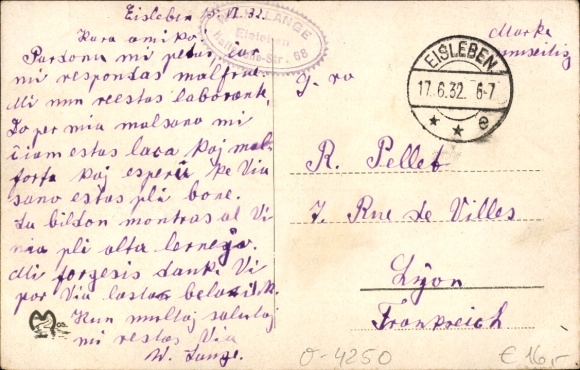 Eisleben 15. VI. 32.
Kara amiko!
Pardonu mi petas, ĉar
mi respondas malfrue.
Mi nun reestas laboranta,
Do per mia malsano mi
ĉiam estas laca kaj mal-
forta kaj esperu ke Via
sano estas pli bone.
La bildon montras al Vi
nia pli alta lernejo.
Mi forgesis danki Vi
por Via lasta bela k.
Kun multaj salutoj
mi restas Via
W. Lange.
LANGE
Eisleben
Str. 68
EISLEBEN
17.6.32. 6-7
* * e
Marke
umseitig
R. Pellet
7. Rue de Villes
Lyon
Frankreich
O-4250
€ 16,-